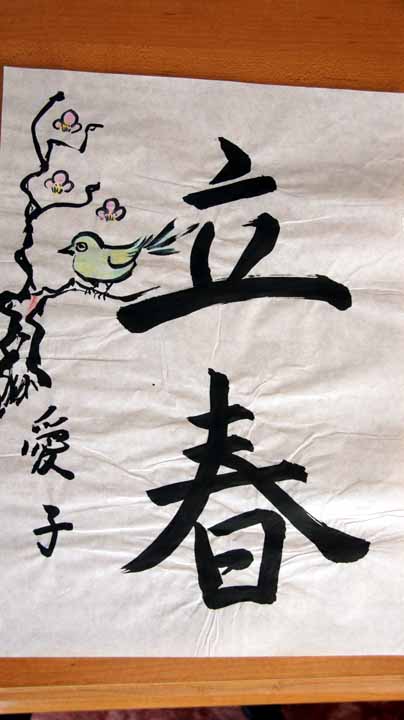 立春
愛子